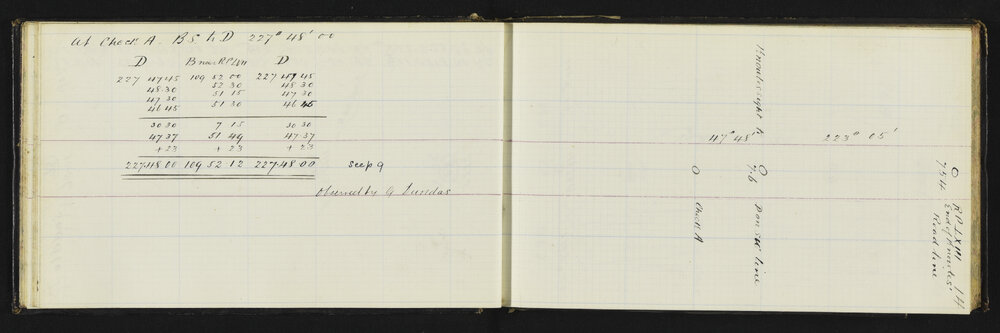 At Check A. BS to D 227° 48' 00
D B near RP LXII D
227 47 45 109 52 00 227 47 45
48 30 52 30 48 30
47 30 51 15 47 30
46 45 51 30 46 45
30 30 7 15 30 30
47 37 51 49 47 37
+ 23 + 23 + 23
227.48.00 109 52 12 227.48 00 see p 9
Observed by G Dundas
47° 48' 223° 05'
Check A
line
754
RP LXIII
End of Knowles'
Road line
14